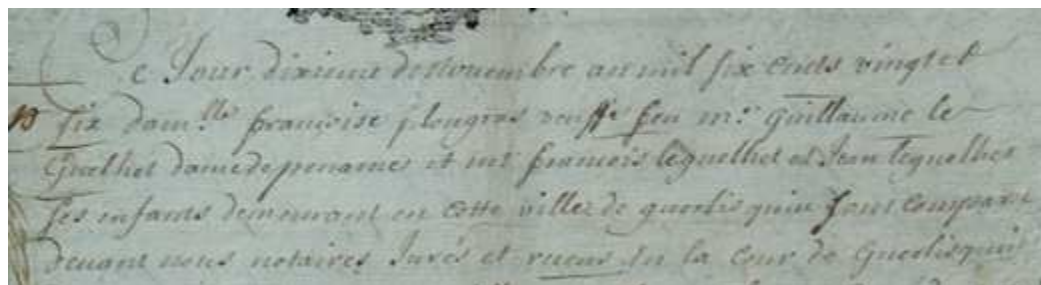 Ce Jour dixieme de Nouembre an mil six cents vingt et
six dam.lle françoise plougras veuffe feu m.e Guillaume le
Guelhet dame de penames et m.e francois le guelhet et Jean le guelhet
ses enfants demeurant en cette ville de guerlisquin sont comparu
deuant nous notaires Jurés et receus en la Cour de Guerlisquin